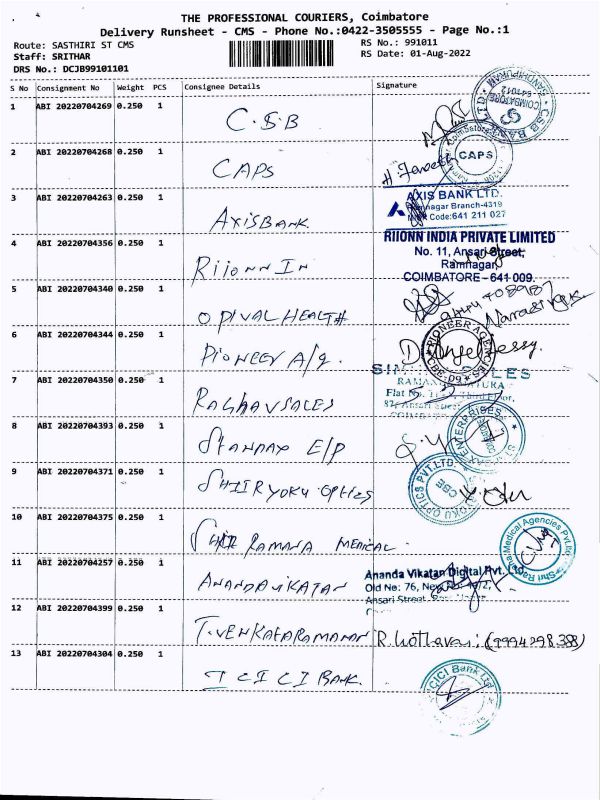 THE PROFESSIONAL COURIERS, Coimbatore
Delivery Runsheet - CMS - Phone No.:0422-3505555 - Page No.:1
Route: SASTHIRI ST CMS RS No.: 991011
Staff: SRITHAR RS Date: 01-Aug-2022
DRS No.: DCJB99101101
S No Consignment No Weight PCS Consignee Details Signature
1 ABI 20220704269 0.250 1
C.S.B
CSB BANK LTD. COIMBATORE 641012 GANDHIPURAM
2 ABI 20220704268 0.250 1
CAPS
Coimbatore CAPS
3 ABI 20220704263 0.250 1
AXISBANK
AXIS BANK LTD.
Branch-4319
Code:641 211 027
4 ABI 20220704356 0.250 1
RIIONN IN
RIIONN INDIA PRIVATE LIMITED
No. 11, Ansari Street,
Ramnagar,
COIMBATORE - 641 009.
5 ABI 20220704340 0.250 1
OPIVAL HEALTH
6 ABI 20220704344 0.250 1
PIONEEY A/g.
PIONEER AGENCIES CBE-09
7 ABI 20220704350 0.250 1
RAGHAVSALES
Flat No. Third Floor,
8 ABI 20220704393 0.250 1
STANDAX E/P
ENTERPRISES
9 ABI 20220704371 0.250 1
SHIIRYOKU OPTICS
OPTICS PVT.LTD. CBE
10 ABI 20220704375 0.250 1
SHRI RAMANA MEDICAL
Shri Ramana Medical Agencies Pvt.Ltd
11 ABI 20220704257 0.250 1
ANANDAVIKATAN
Ananda Vikatan Digital Pvt. Ltd.
Old No: 76, New No:
Ansari Street
12 ABI 20220704399 0.250 1
T.VENKATARAMANAN
13 ABI 20220704304 0.250 1
ICICI BANK.
ICICI Bank Ltd